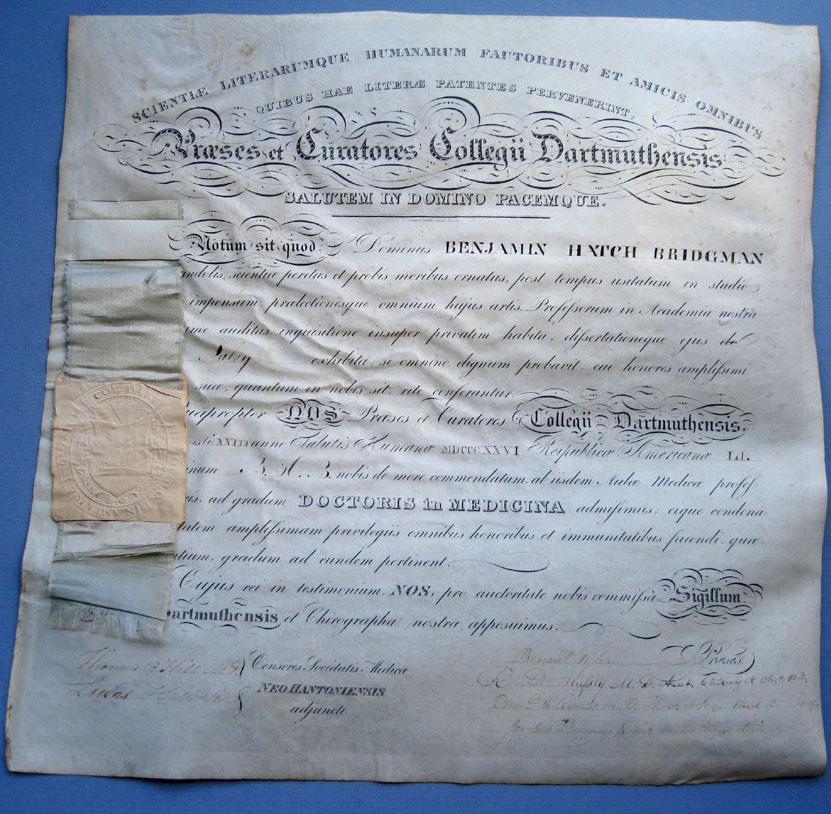 SCIENTIÆ LITERARUMQUE HUMANARUM FAUTORIBUS ET AMICIS OMNIBUS
QUIBUS HAE LITERÆ PATENTES PERVENERINT,
Præses et Curatores Collegii Dartmuthensis
SALUTEM IN DOMINO PACEMQUE.
Notum sit quod Dominus BENJAMIN HATCH BRIDGMAN
scientiæ peritus et probis moribus ornatus, post tempus usitatum in studio
impensum, prælectionesque omnium hujus artis, Professorum in Academia nostra
auditus inquisitione insuper privatim habita, dissertationeque ejus de
exhibita, se omnino dignum probavit, cui honores amplissimi
quantum in nobis sit, rite conferantur.
NOS Præses et Curatores Collegii Dartmuthensis,
anno Salutis Humanæ MDCCCXXVI Reipublicæ Americanæ LI.
B. H. B. nobis de more commendatum, ab iisdem Aulæ Medicæ profes
ad gradum DOCTORIS in MEDICINA admisimus; eique condona
tatem amplissimam privilegiis omnibus honoribus et immunitatibus fruendi, quæ
gradum ad eundem pertinent.
Cujus rei in testimonium, NOS, pro auctoritate nobis commissâ Sigillum
Dartmuthensis et Chirographa nostra apposuimus.
Censores Societatis Medicæ
NEO HANTONIENSIS
adjuncti
Præses
R. D. Mussey M. D.